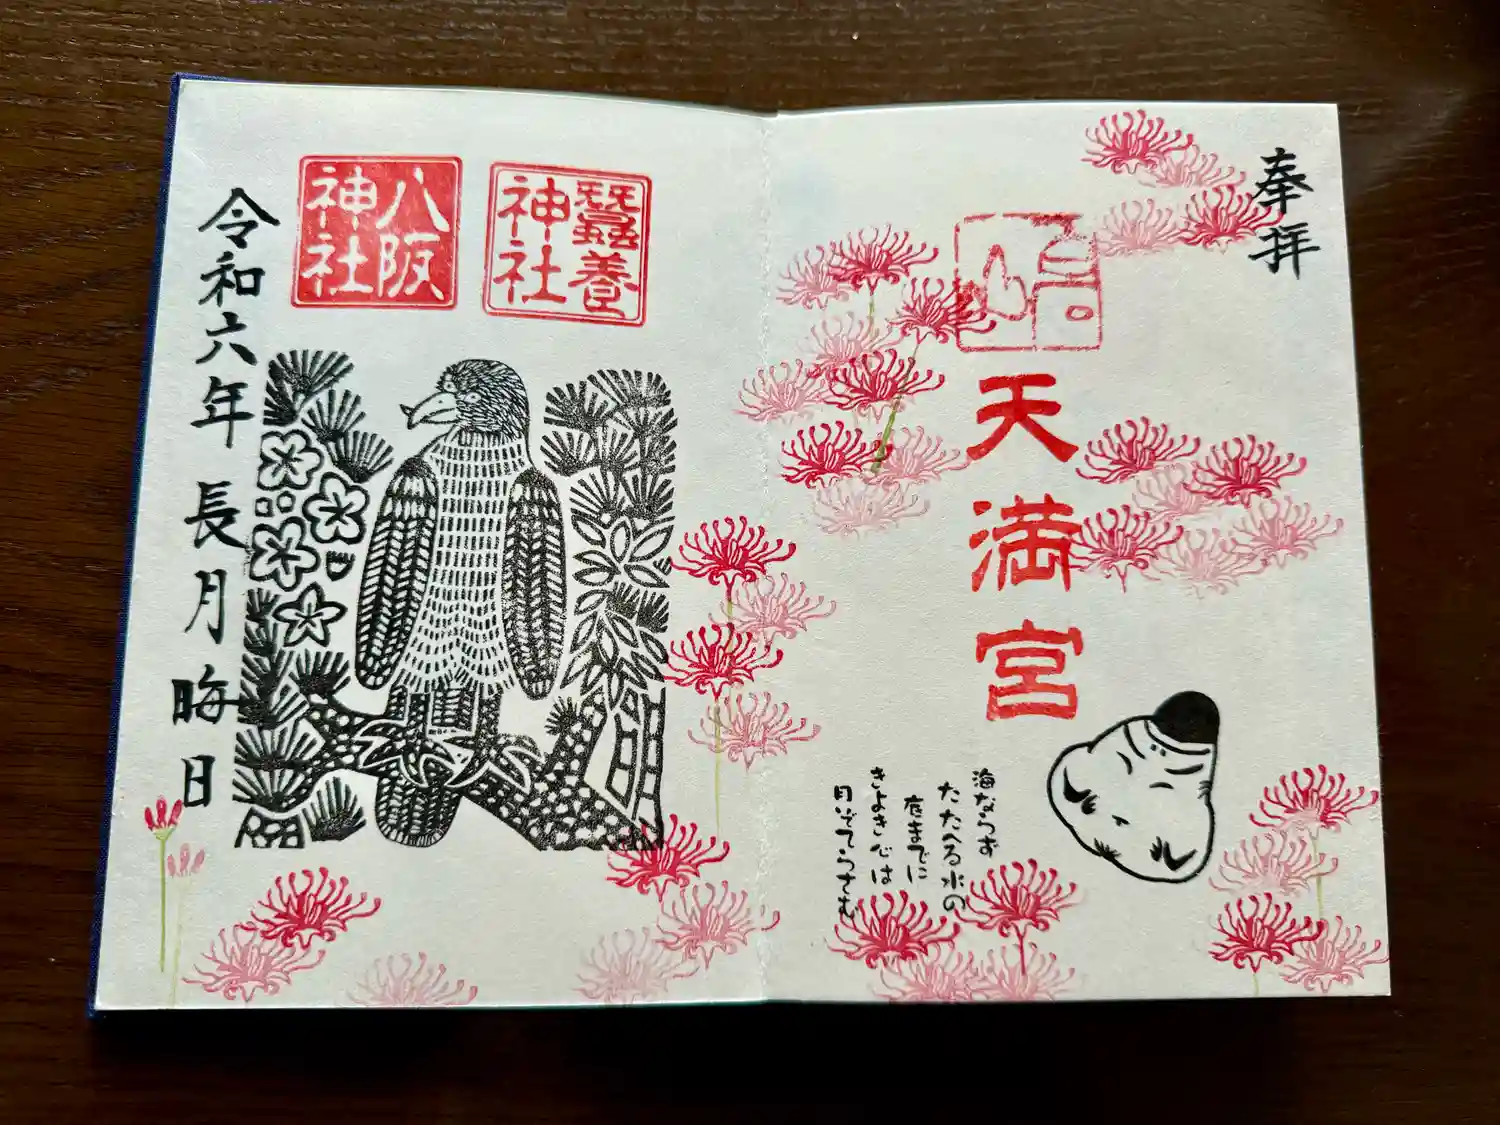 奉拝
天満宮
海ならず
たたへる水の
底までに
きよき心は
月ぞてらさむ
蠶養
神社
八阪
神社
令和六年長月晦日